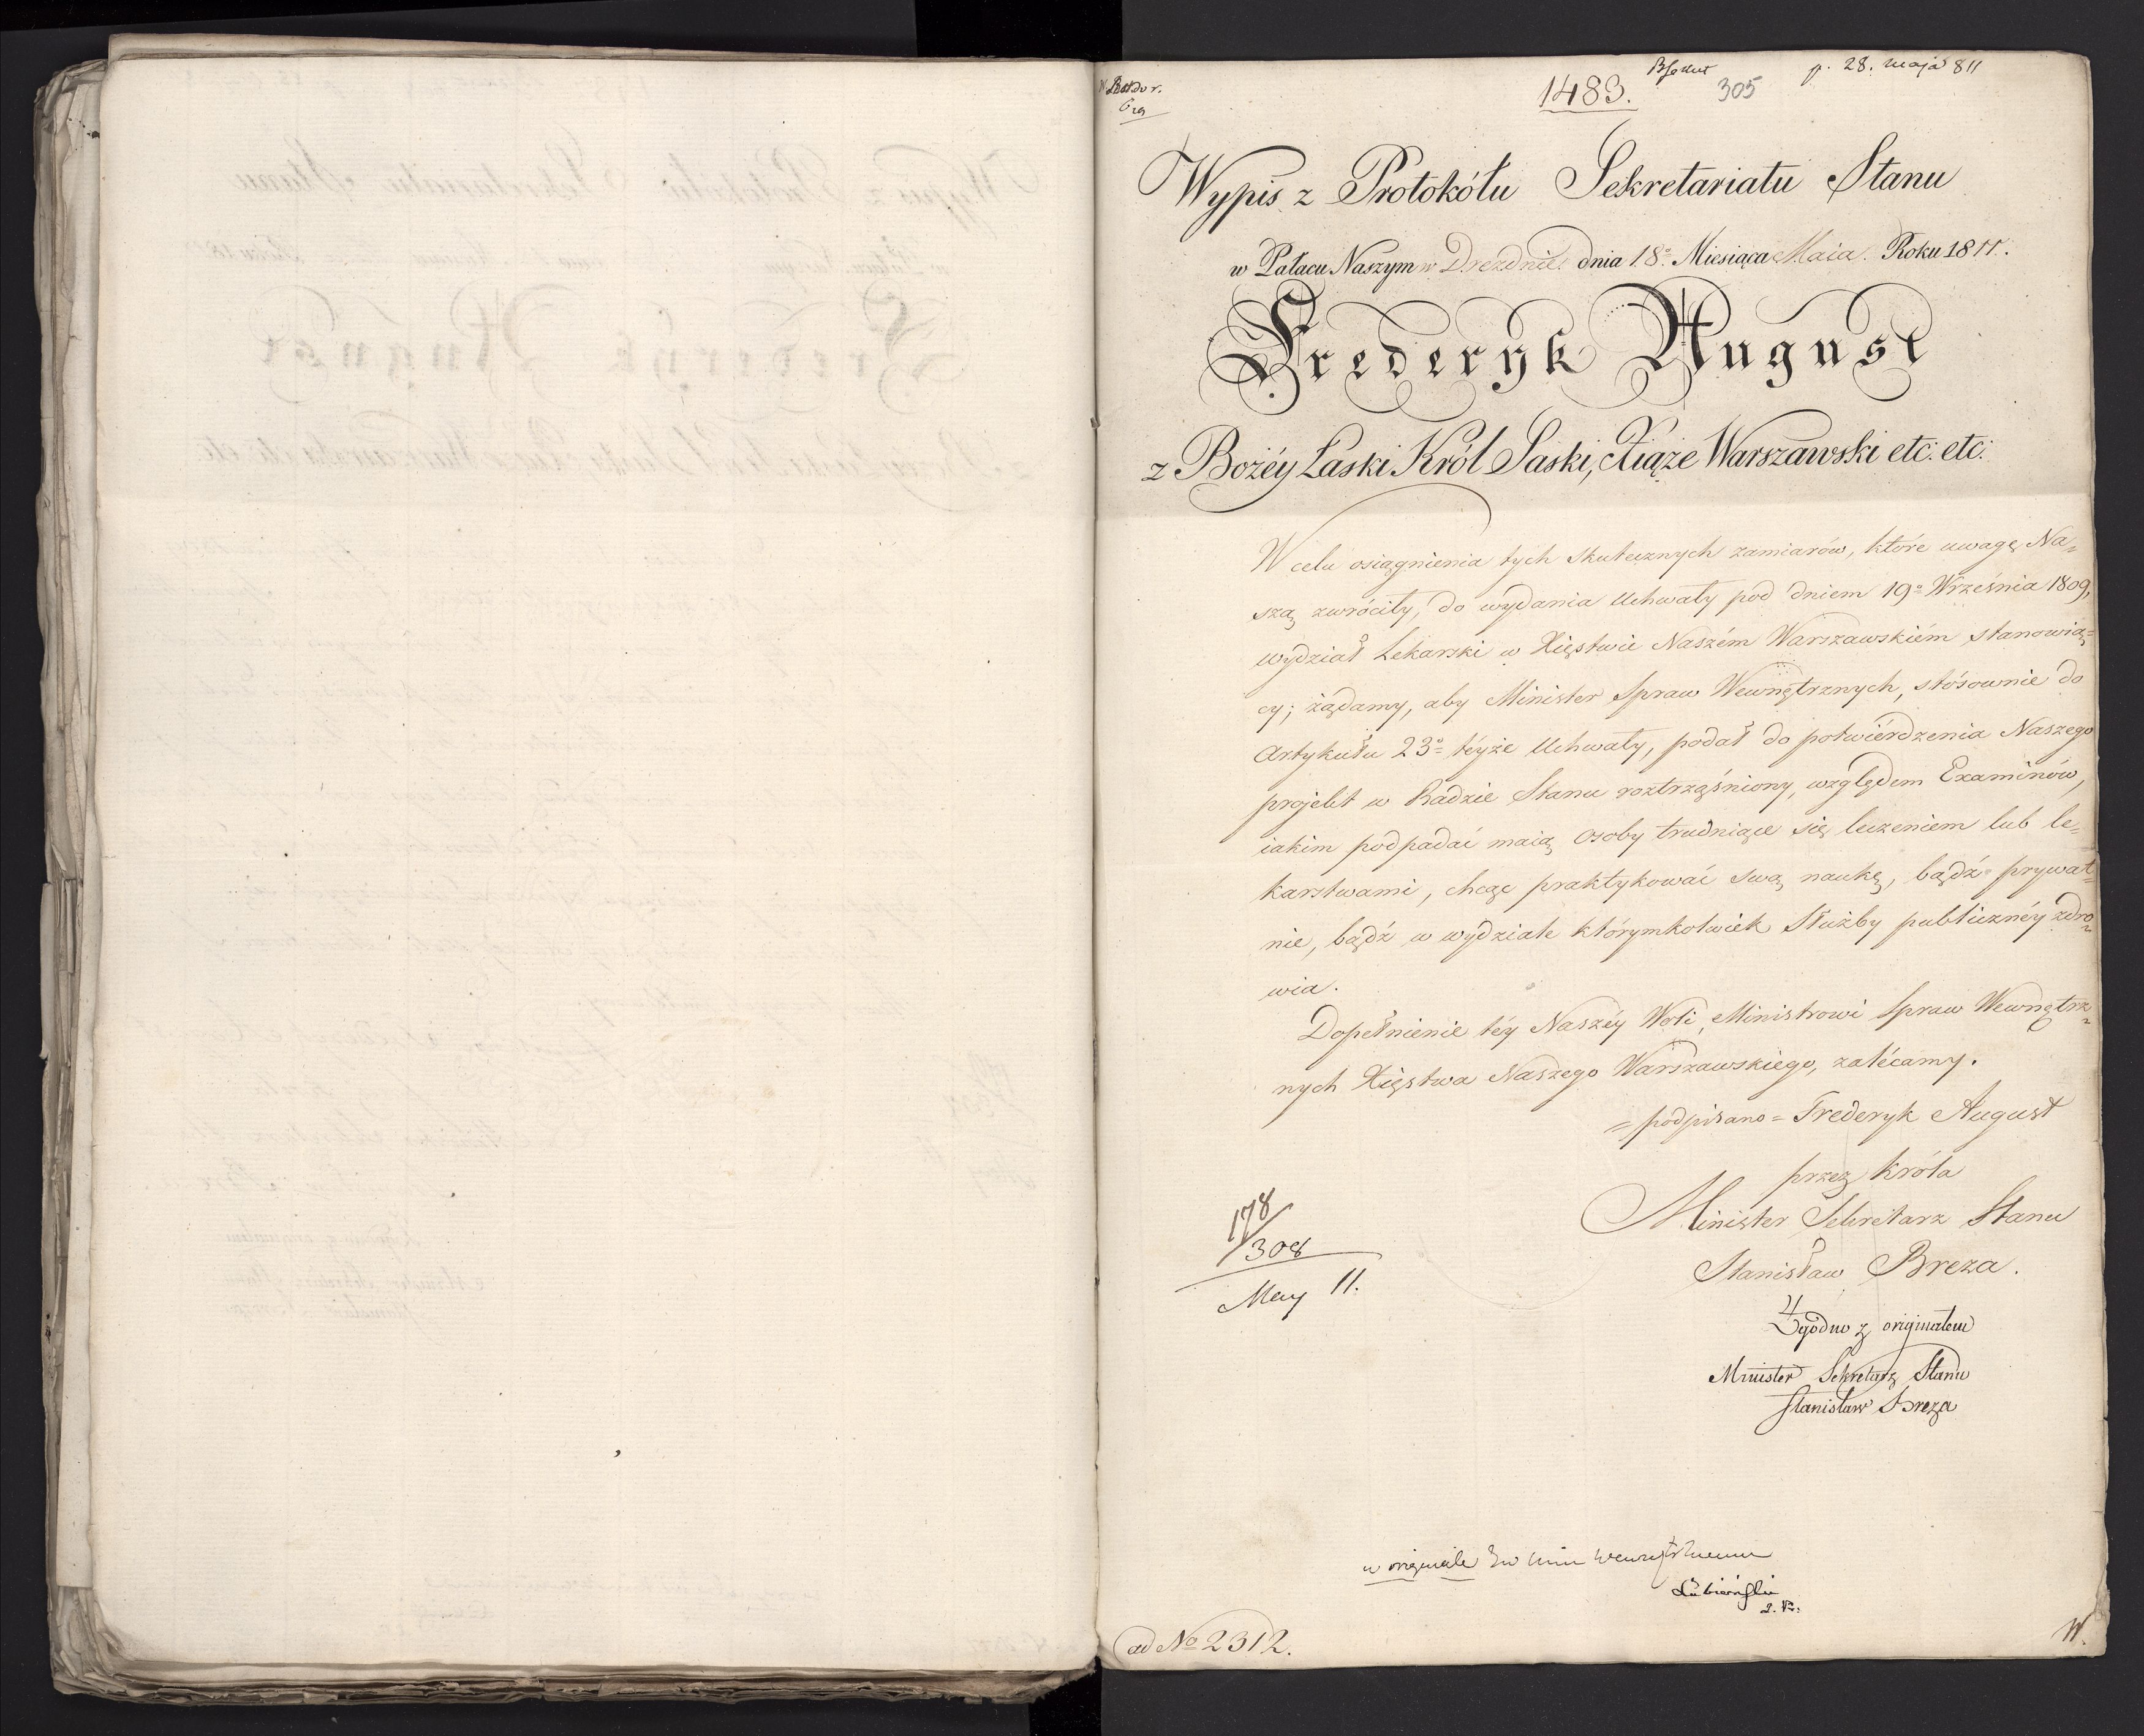 1483.
305
p. 28. maja 811
Wypis z Protokółu Sekretariatu Stanu
w Pałacu Naszym w Dreznie dnia 18.º Miesiąca Maia. Roku 1811.
Frederyk August
z Bożéy Łaski Król Saski, Xiąże Warszawski etc: etc:
W celu osiągnienia tych skutecznych zamiarów, które uwagę Na=
szą zwróciły, do wydania Uchwały pod dniem 19º Września 1809,
wydział Lekarski w Xięstwie Naszém Warszawskiém stanowią=
cy; żądamy, aby Minister Spraw Wewnętrznych, stósownie do
Artykułu 23º téyże Uchwały, podał do potwiérdzenia Naszego
projekt w Radzie Stanu roztrząśniony, względem Examinów,
iakim podpadać maią osoby trudniące się leczeniem lub le=
karstwami, chcąc praktykować swą naukę, bądź prywat=
nie, bądź w wydziale którymkolwiek Służby publicznéy zdro=
wia.
Dopełnienie téy Naszéy Woli, Ministrowi Spraw Wewnętrz=
nych Xięstwa Naszego Warszawskiego, zalécamy.
= podpisano = Frederyk August
przez Króla
Minister Sekretarz Stanu
Stanisław Breza.
178/308
May 11.
Zgodno z originałem
Minister Sekretarz Stanu
Stanisław Breza
w originale
Łubieński
ad Nº 2312.
W.